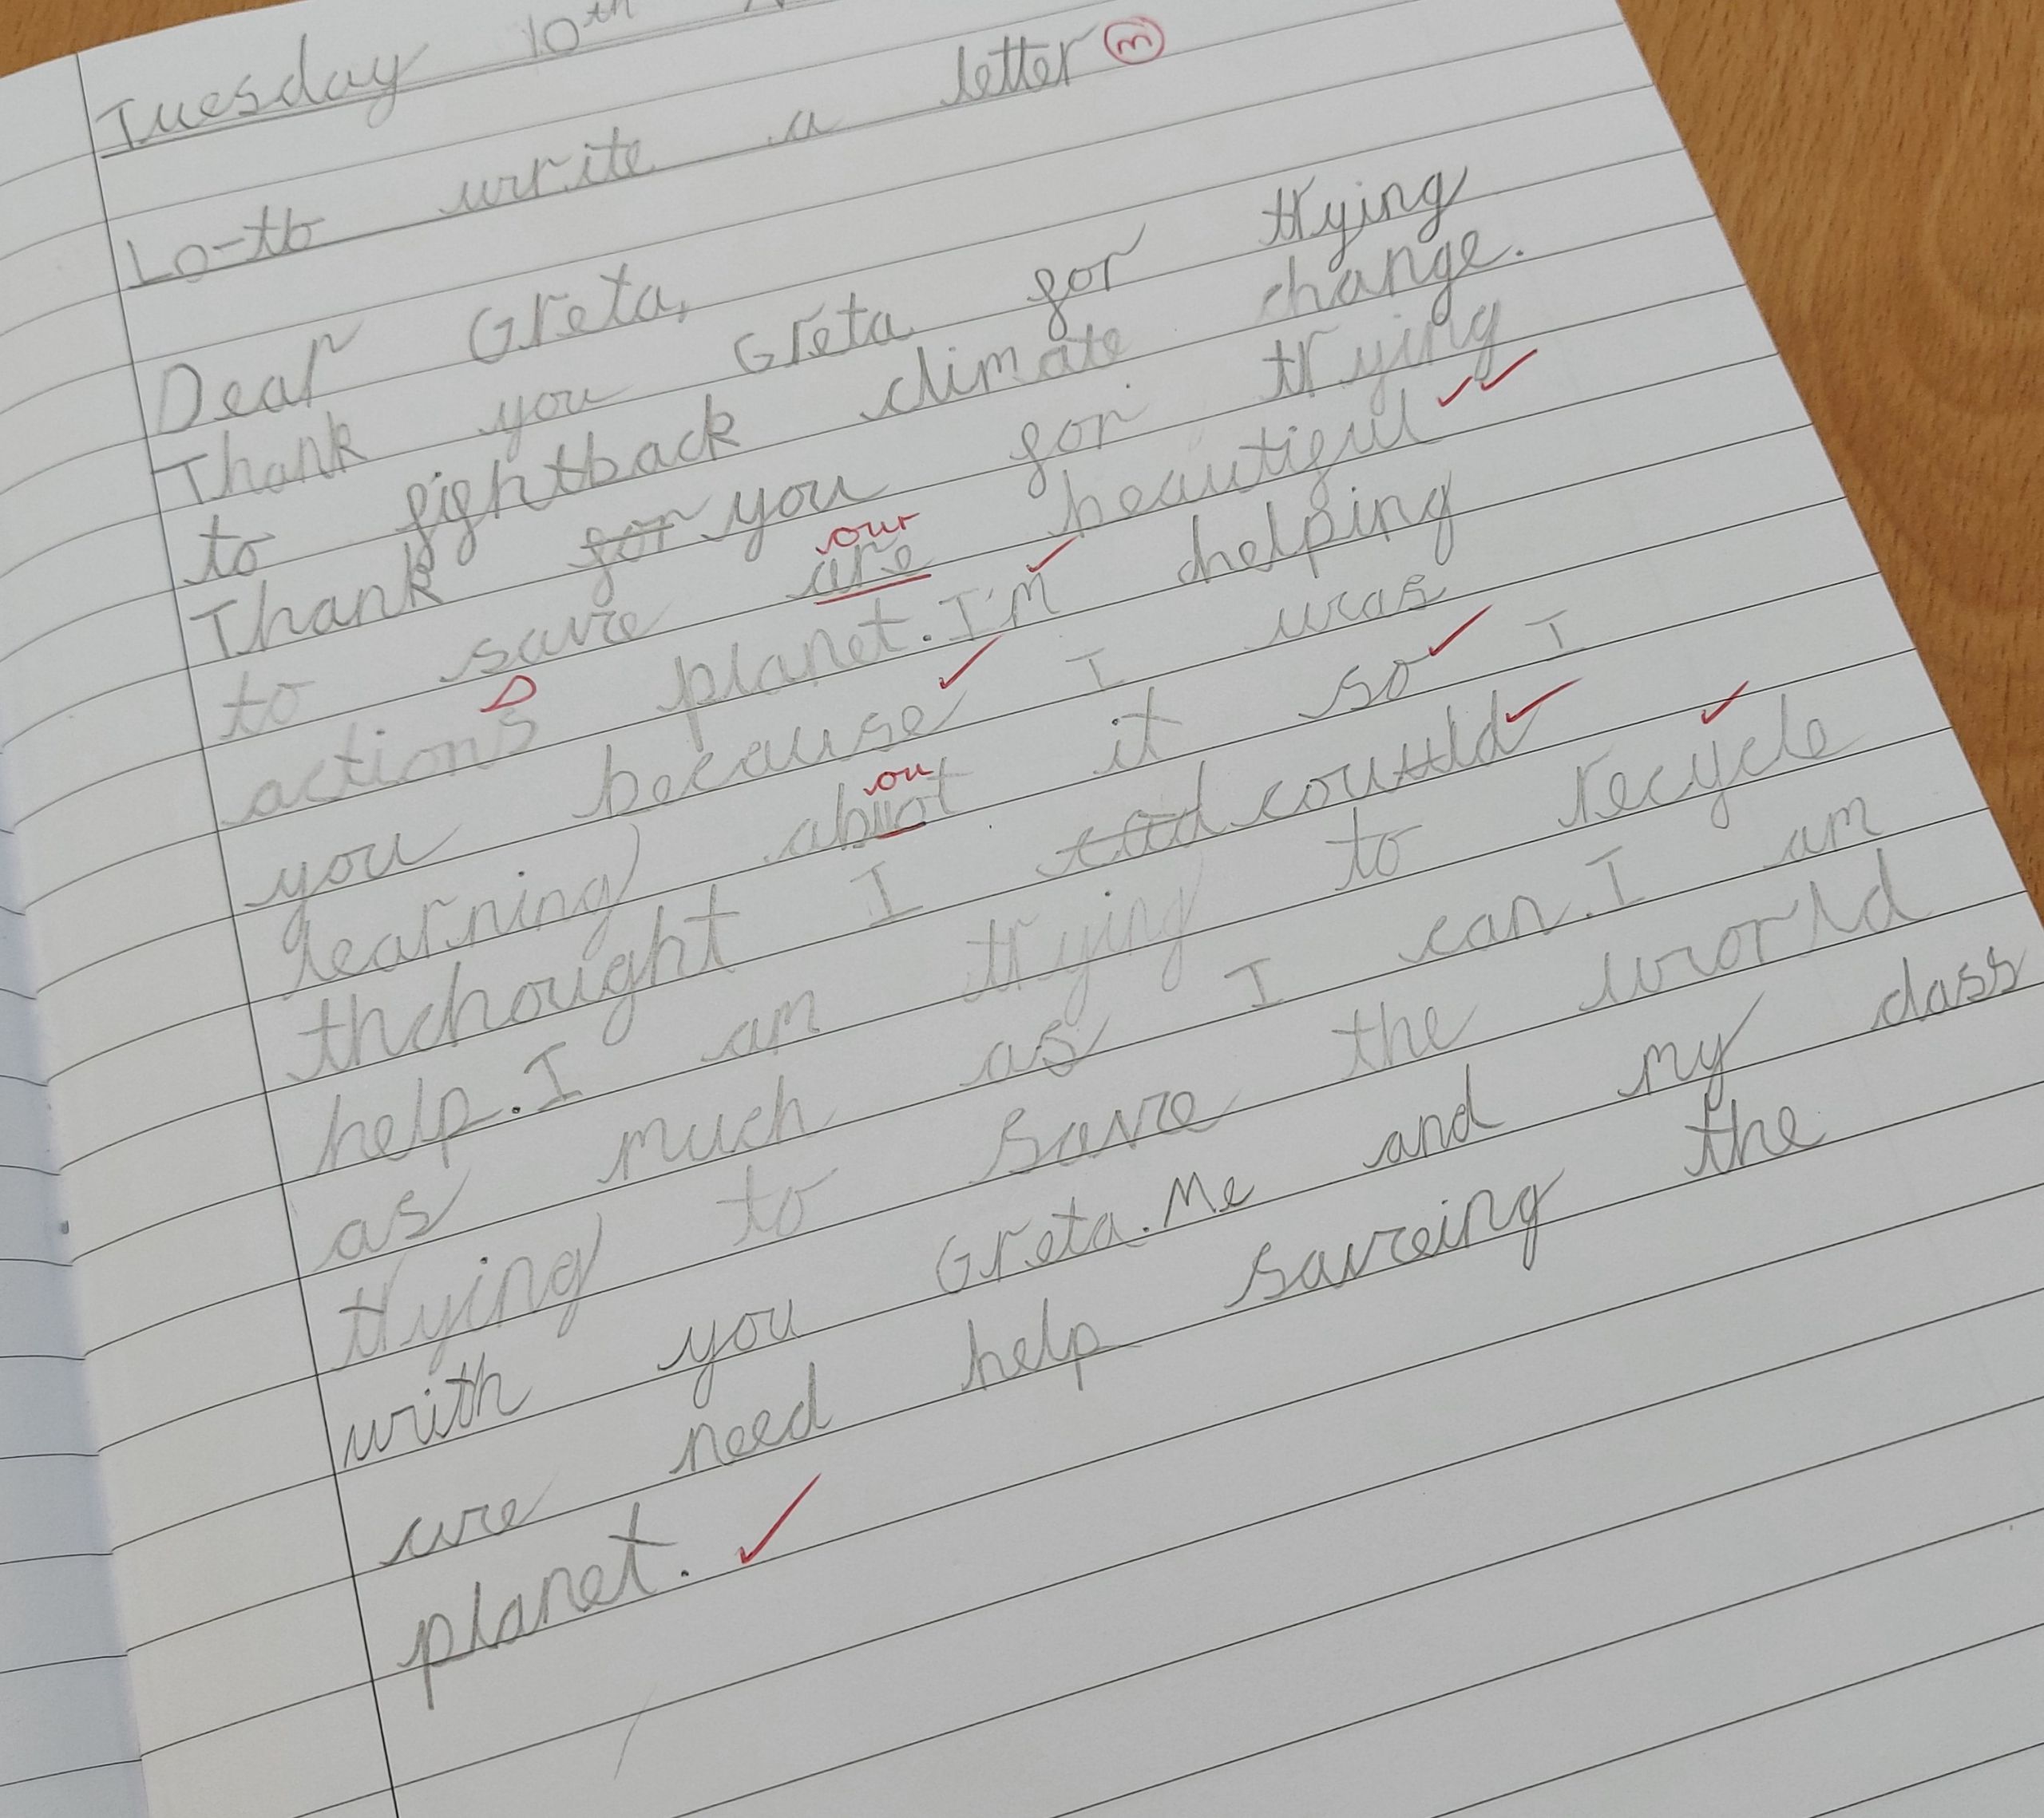 Tuesday 10th
Lo-to write a letter m
Dear Greta,
Thank you Greta for trying
to fightback climate change.
Thank for you for trying
our
to save are beautiful
actions planet. I'm helping
you because I was
ou
learning abuot it so I
thchought I cud couttld
help. I am trying to recycle
as much as I can. I am
trying to save the world
with you Greta. Me and my class
we need help saveing the
planet.